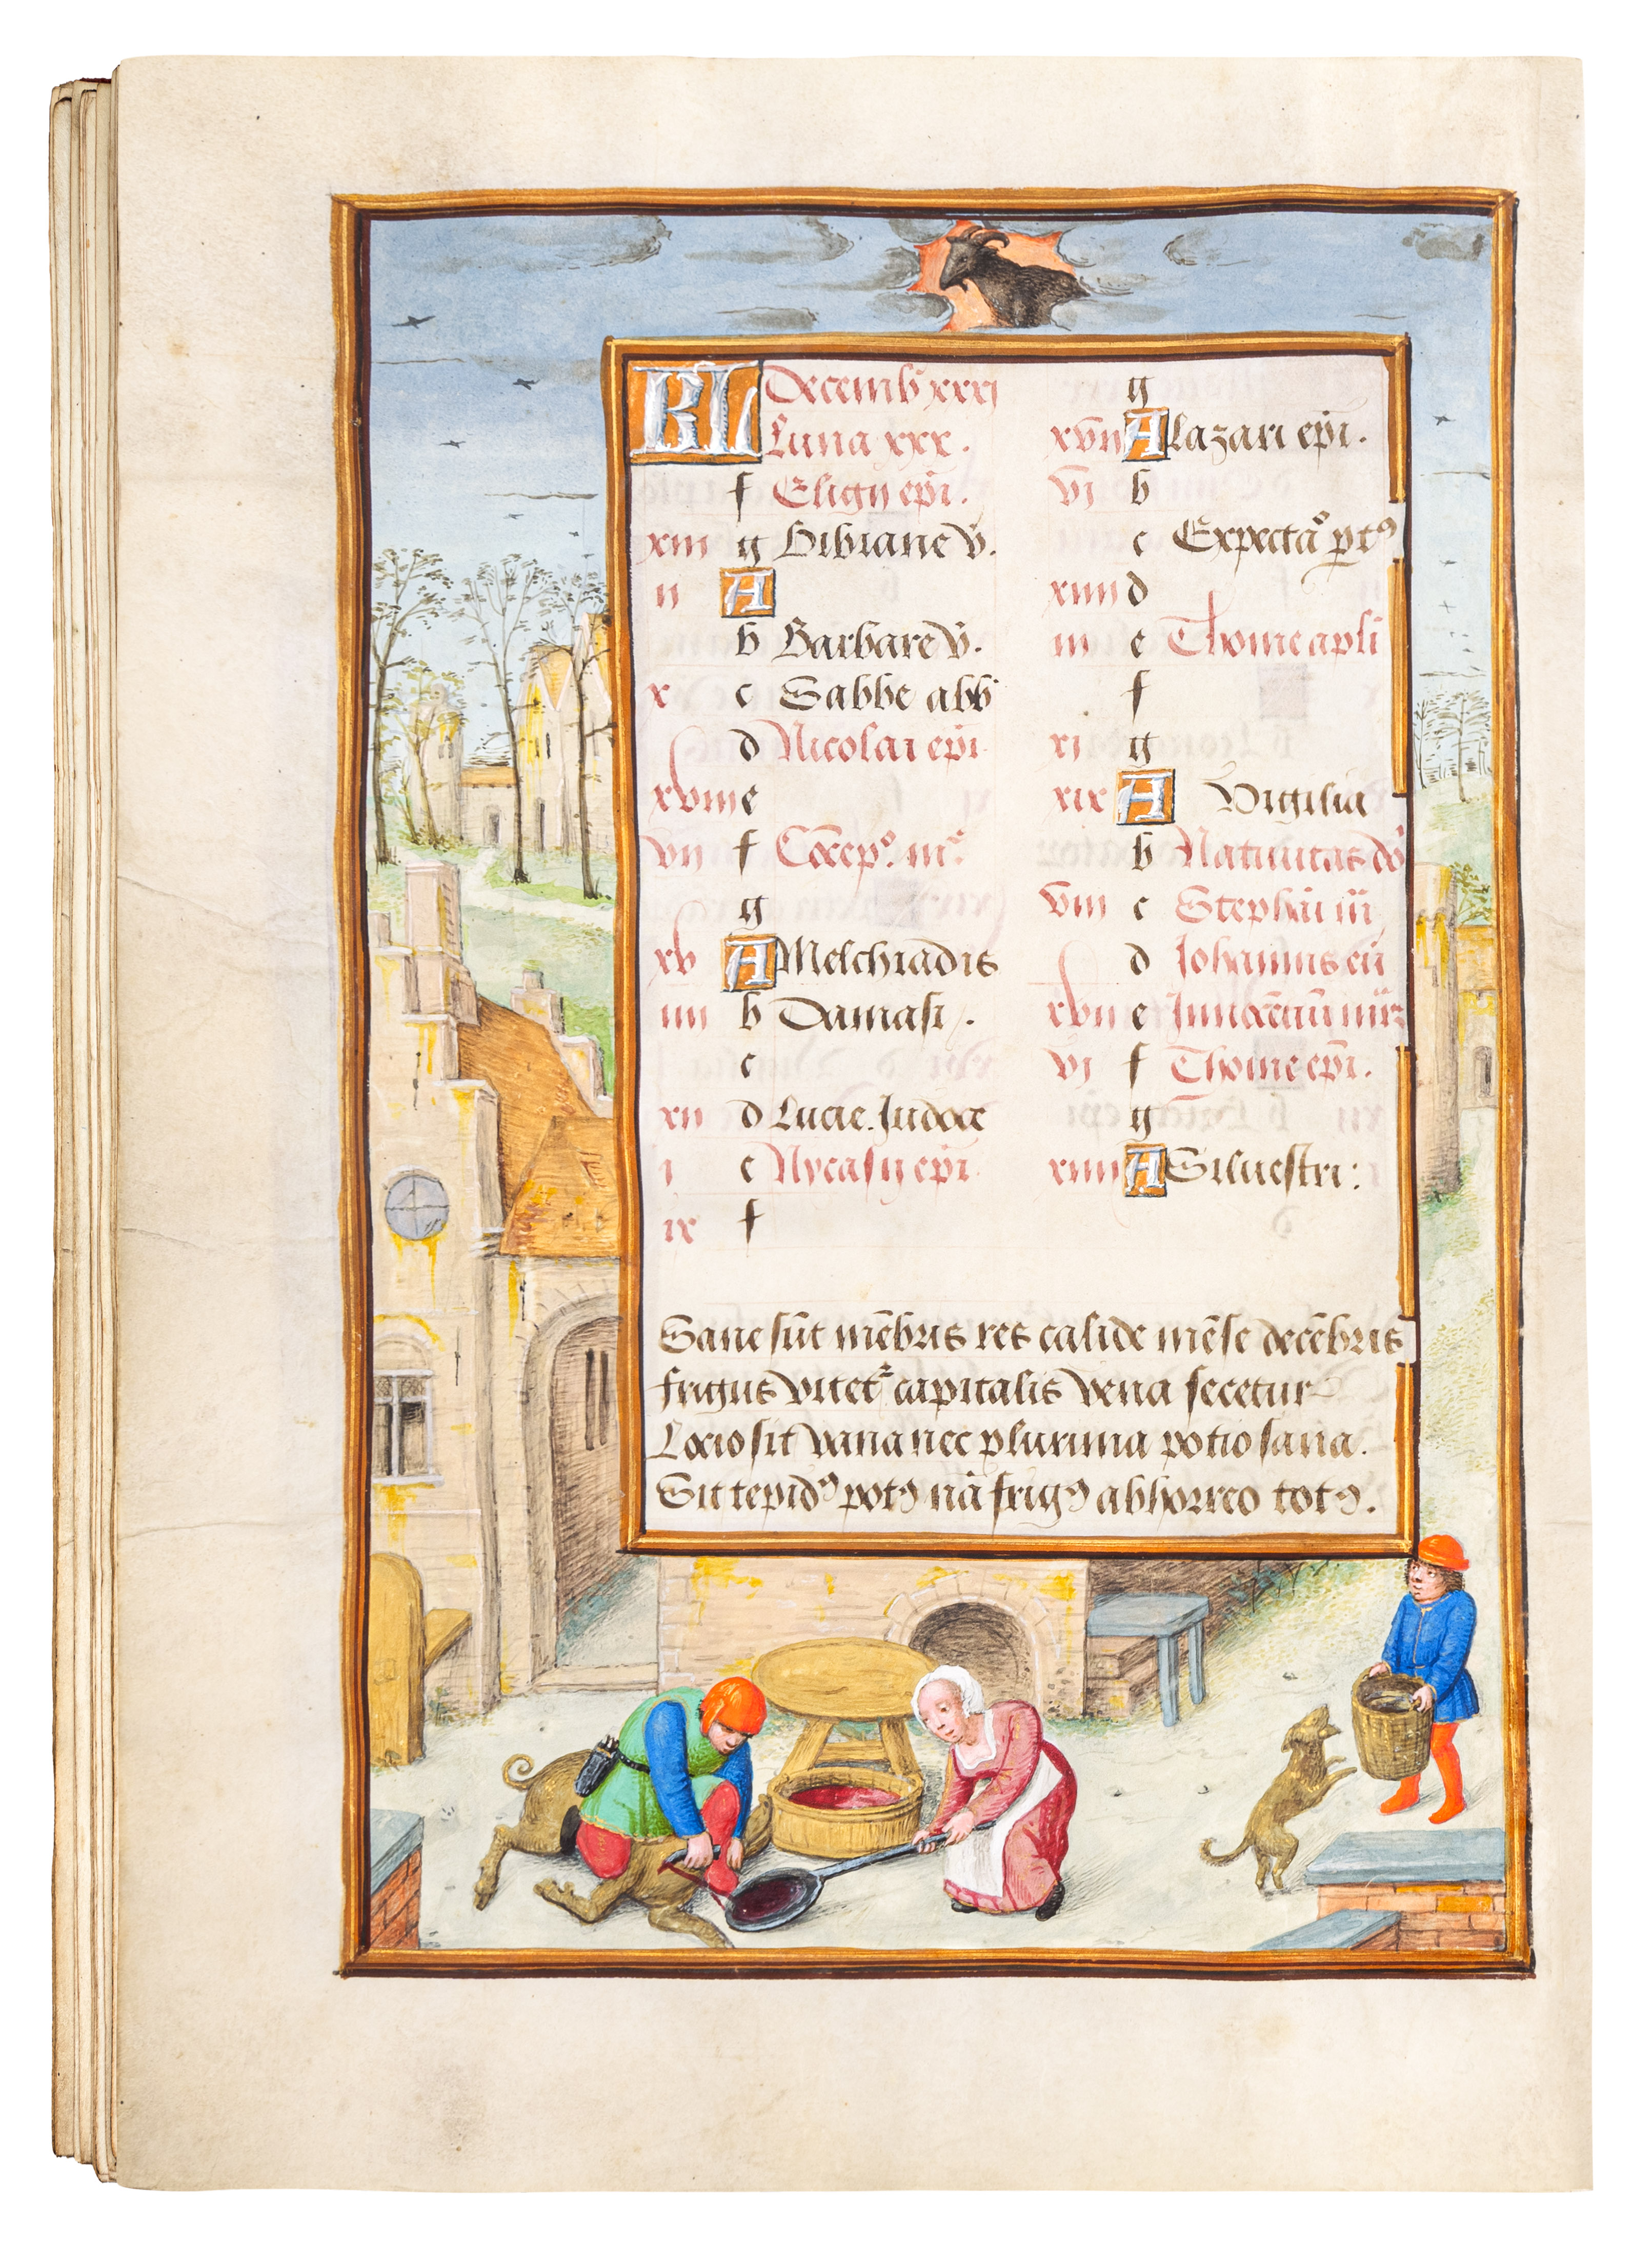 KL Decemb xxxi
Luna xxx.
f Eligii epi.
xiii g Bibiane v.
ii A
b Barbare v.
x c Sabbe abb
d Nicolai epi
xviii e
vii f Cōcep° m^e.
g
xv A Melchiadis
iiii b Damasi.
c
xii d Lucie. Judoce
i e Nycasii epi
ix f
g
xvii A lazari epi.
vi b
c Expectā° pt9
xiiii d
iii e Thome apli
f
xi g
xix A Vigilia
b Natiuitas dō
viii c Stephāi iii
d Johannis eū
xvii e Innocētiū mīz
vi f Thome epi.
g
xiiii A Siluestri:
Sane sūt mēbris res calide mēse decēbris
frigus vitet^r capitalis vena secetur
Locio sit vana nec plurima potio sana.
Sit tepid9 pot9 nā frig9 abhorreo tot9.